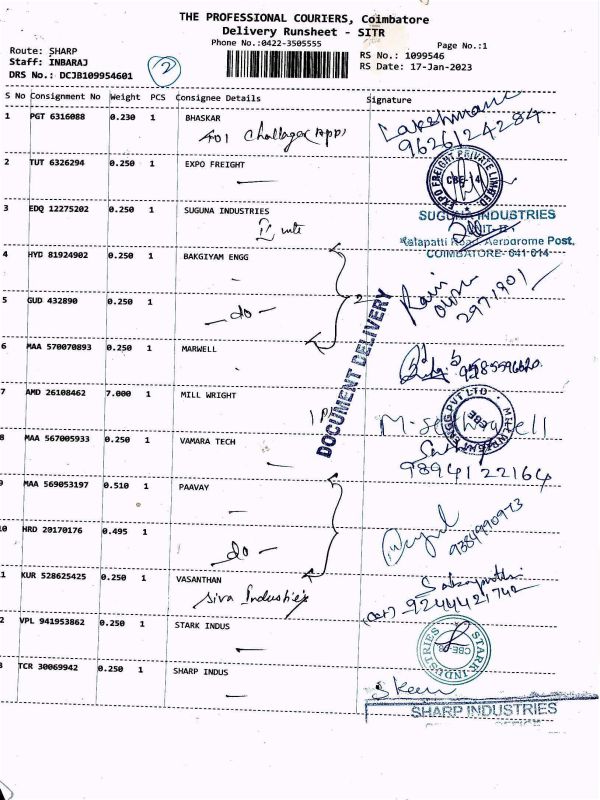 THE PROFESSIONAL COURIERS, Coimbatore
Delivery Runsheet - SITR
Phone No.:0422-3505555
Page No.:1
Route: SHARP
Staff: INBARAJ
DRS No.: DCJB109954601
2
RS No.: 1099546
RS Date: 17-Jan-2023
S No Consignment No Weight PCS Consignee Details Signature
1 PGT 6316088 0.230 1 BHASKAR
Lakshmanan
9626124284
2 TUT 6326294 0.250 1 EXPO FREIGHT
EXPO FREIGHT PRIVATE LIMITED
CBE-14
3 EDQ 12275202 0.250 1 SUGUNA INDUSTRIES
SUGUNA INDUSTRIES
Kalapatti Road, Aerodrome Post,
COIMBATORE- 641 014
4 HYD 81924902 0.250 1 BAKGIYAM ENGG
5 GUD 432890 0.250 1
do
2
DOCUMENT DELIVERY
Ram
2971901
6 MAA 570070893 0.250 1 MARWELL
7 AMD 26108462 7.000 1 MILL WRIGHT
8 MAA 567005933 0.250 1 VAMARA TECH
9894122164
9 MAA 569053197 0.510 1 PAAVAY
0 HRD 20170176 0.495 1
do
9384990973
1 KUR 528625425 0.250 1 VASANTHAN
Siva Industries
9244421742
2 VPL 941953862 0.250 1 STARK INDUS
STARK INDUSTRIES
3 TCR 30069942 0.250 1 SHARP INDUS
SHARP INDUSTRIES